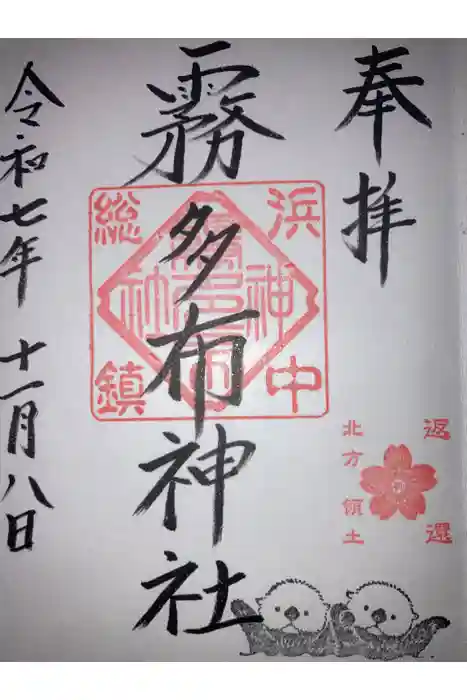 奉拝
霧多布神社
令和七年 十一月八日
浜中
総鎮
神社
返還
北方領土